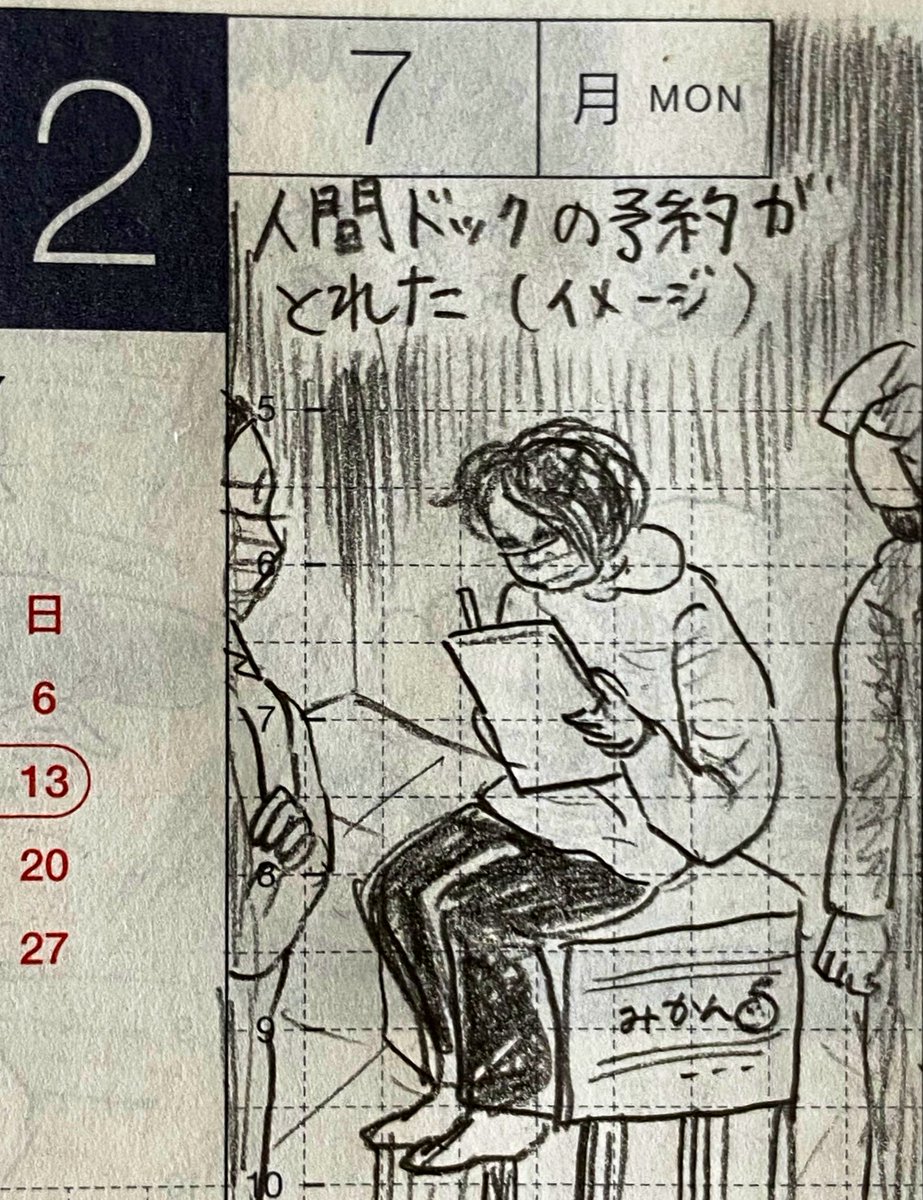 2
7
月 MON
人間ドックの予約が
とれた（イメージ）
5
6
7
8
9
10
日
6
13
20
27
みかん